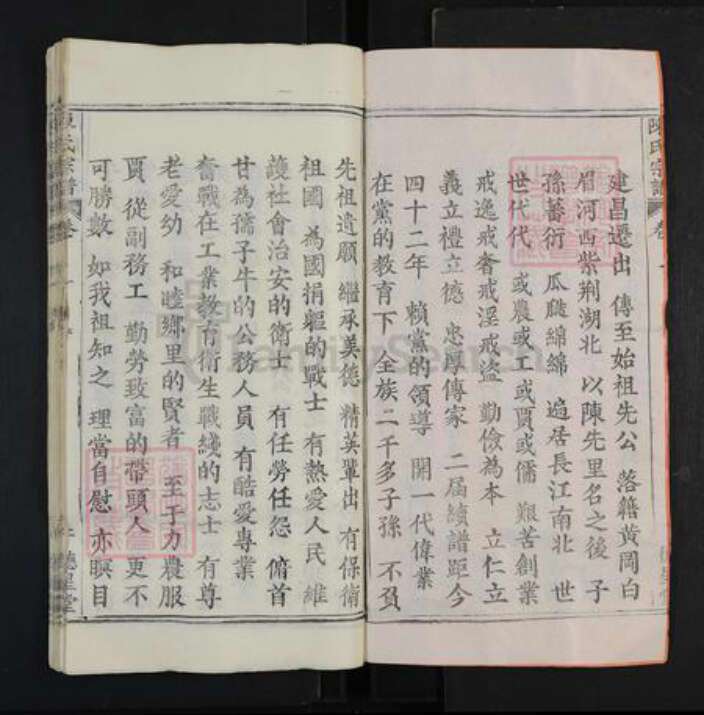 陳氏宗譜
卷一
建昌遷出 傳至始祖先公 落籍黃岡白
眉河西紫荆湖北 以陳先里名之後 子
孫蕃衍 瓜瓞綿綿 遍居長江南北 世
世代代 或農或工或賈或儒 艱苦創業
戒逸戒奢戒淫戒盜 勤儉為本 立仁立
義立禮立德 忠厚傳家 二届續譜距今
四十二年 賴黨的領導 開一代偉業
在黨的教育下 全族二千多子孫 不負
先祖遺願 繼承美德 精英輩出 有保衛
祖國 為國捐軀的戰士 有熱愛人民 維
護社會治安的衛士 有任勞任怨 俯首
甘為孺子牛的公務人員 有酷愛專業
奮戰在工業教育衛生職綫的志士 有尊
老愛幼 和睦鄉里的賢者 至于力農服
賈 從副務工 勤勞致富的帶頭人 更不
可勝數 如我祖知之 理當自慰 亦瞑目
陳氏宗譜
卷一
德星堂
FamilySearch